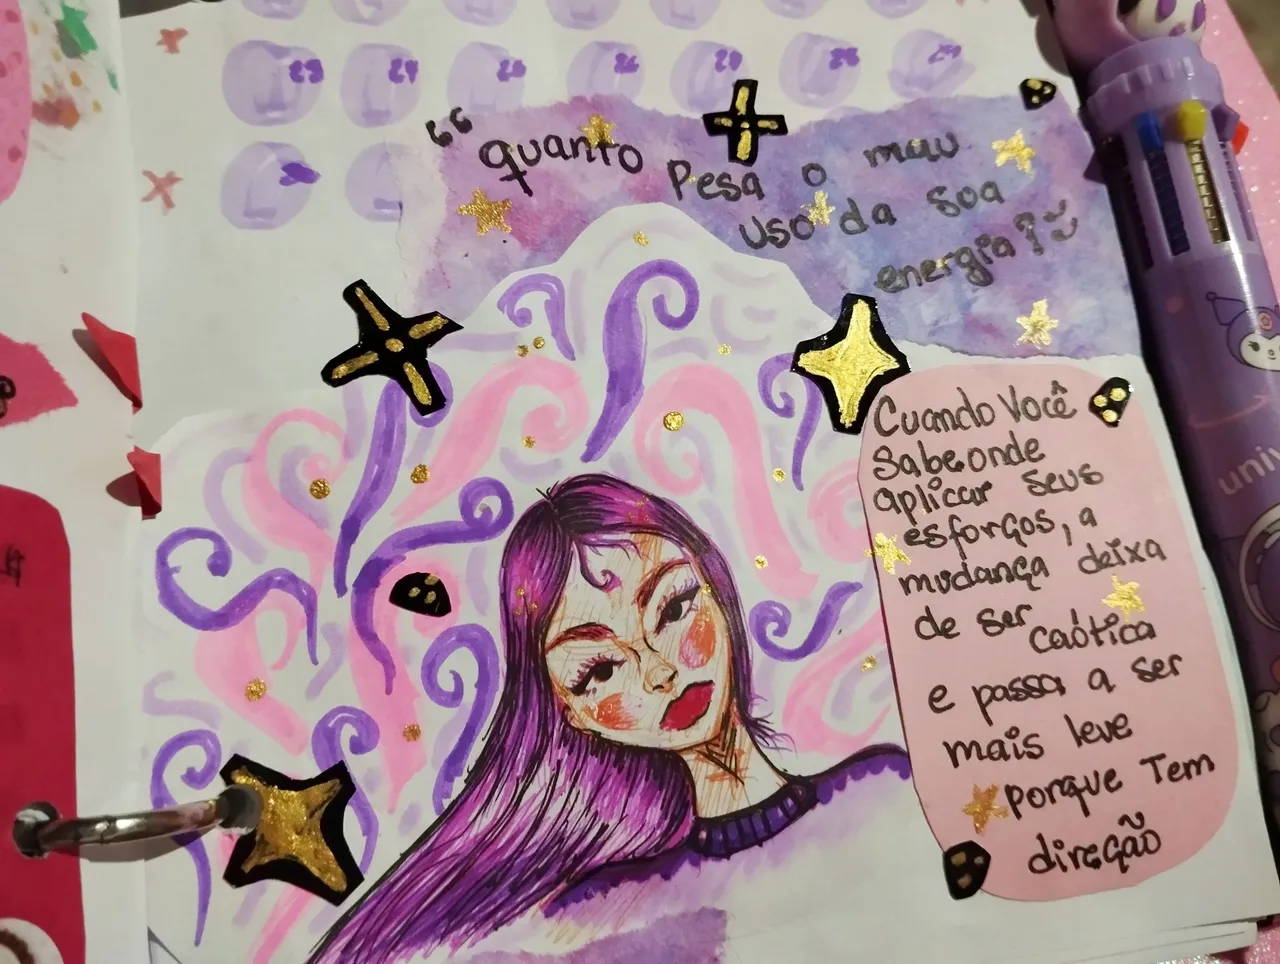 23 24 25 26 28 29
“quanto pesa o mau
uso da sua
energia?
Cuando você
Sabe onde
aplicar seus
esforços, a
mudança deixa
de ser
Caótica
e passa a ser
mais leve
porque Tem
direção
univ